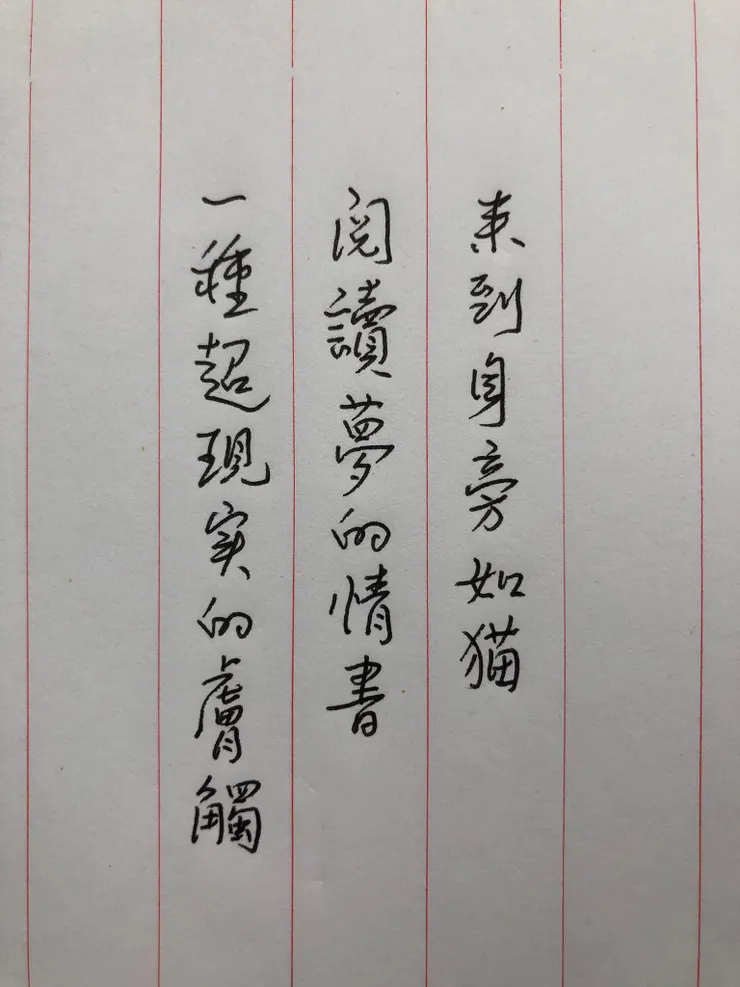 来到身旁如猫
阅讀夢的情書
一種超現实的膚觸